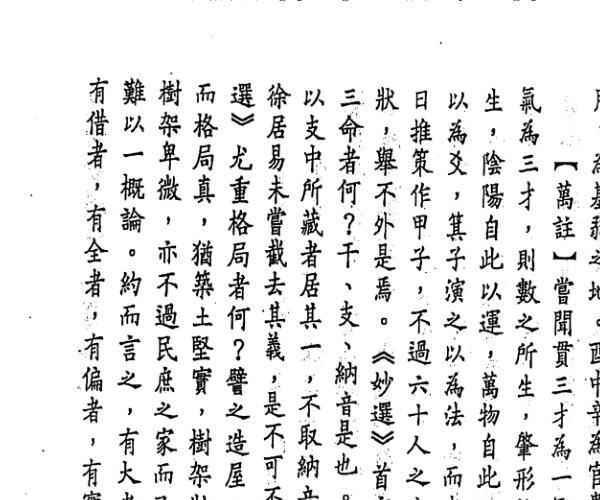 為基
之地。酉中辛為官
【萬註】嘗聞貫三才為一
氣為三才，則數之所生，肇形
生，陰陽自此以運，萬物自此
以為爻，箕子演之以為法，而
日推策作甲子，不過六十人之
狀，舉不外是焉。《妙選》首
三命者何？干、支、納音是也。
以支中所藏者居其一，不取納音
徐居易未嘗截去其義，是不可不
選》尤重格局者何？譬之造屋
而格局真，猶築土堅實，樹架壯
樹架卑微，亦不過民庶之家而已
難以一概論。約而言之，有大者
有借者，有全者，有偏者，有